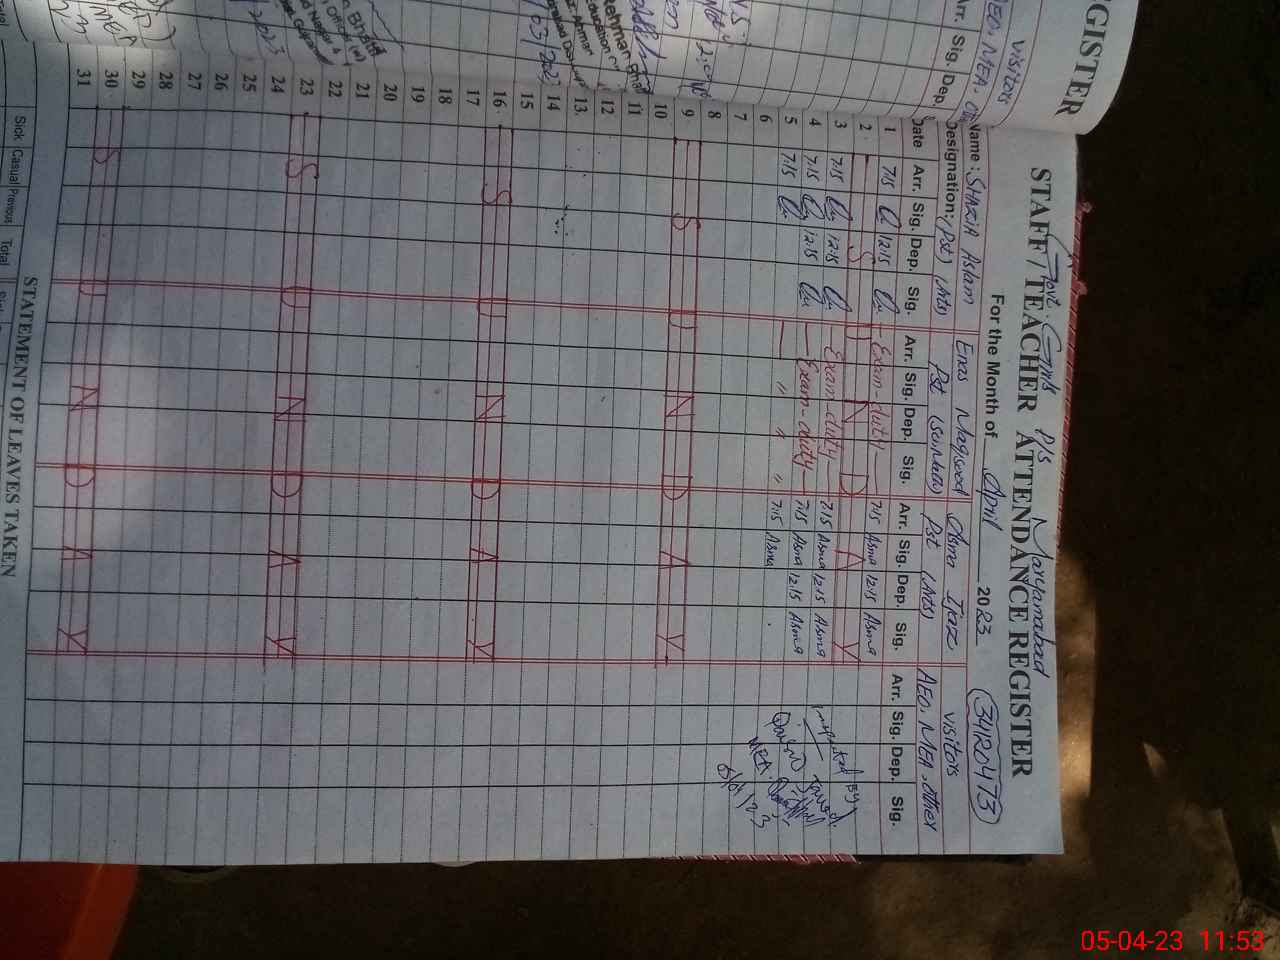 GISTER
visitors
AEO, MEA,
Arr. Sig. Dep.
STAFF/TEACHER ATTENDANCE REGISTER
Govt. Girls P/s Maryamabad
For the Month of April 2023
34120473
Name: SHAZIA Aslam
Enas Maqsood
Asma Ijaz
visitors
Designation: (Pst) (Arts)
Pst (Science)
Pst (Arts)
AEO, MEA, other
Date Arr. Sig. Dep. Sig. Arr. Sig. Dep. Sig. Arr. Sig. Dep. Sig. Arr. Sig. Dep. Sig.
1 7:15 12:15 Exam-duty 7:15 Asma 12:15 Asma
2 S U N D A Y
3 7:15 12:15 Exam-duty 7:15 Asma 12:15 Asma
4 7:15 12:15 Exam-duty 7:15 Asma 12:15 Asma
5 7:15 " " " 7:15 Asma
6
7
8
9 S U N D A Y
10
11
12
13
14
15
16 S U N D A Y
17
18
19
20
21
22
23 S U N D A Y
24
25
26
27
28
29
30 S U N D A Y
31
Inspected By
MEA
5/04/23
STATEMENT OF LEAVES TAKEN
Sick Casual Previous Total
05-04-23 11:53